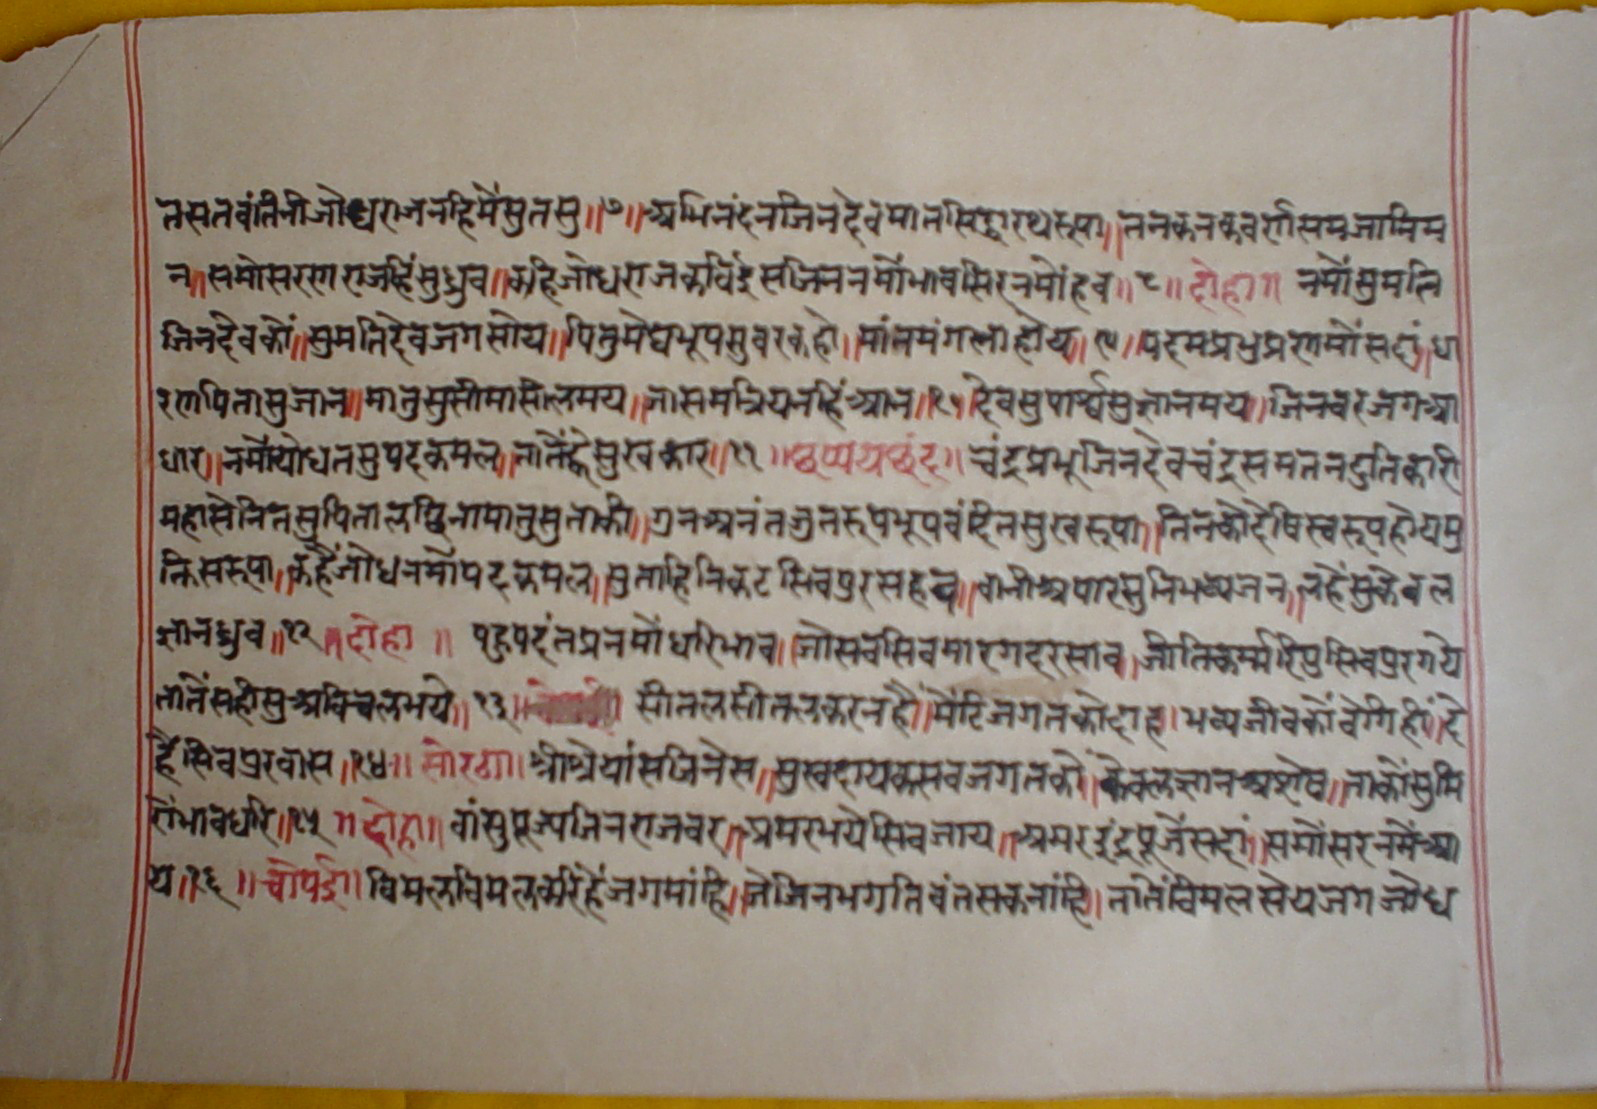 तसतवांतिनीजोधराजनहिमैंसुतसु॥७॥अभिनंदनजिनदेवमातसिद्धारथरूपा॥तनकनकवर्णसम
न॥समोसरणराजहिंसुध्रुव॥कहिजोधराजकवि जिननमोंभावसिरनमोंहव॥८॥दोहा॥ नमोंसुमति
जिनदेवकों॥सुमतिदेवजगसोय॥पितुमेघभूपसुवरकहो॥मांतमंगलाहोय॥९॥पदमप्रभुप्रणमोंसदां॥धा
रणपितासुजान॥मातुसुसीमासीलमय॥जासमत्रियनहिंआन॥१०॥देवसुपार्श्वसुज्ञानमय॥जिनवरजगआ
धार॥नमोंयोधतसुपदकमल॥तातैंह्वैसुखकार॥११॥छप्पयछंद॥ चंद्रप्रभूजिनदेवचंद्रसमतनदुतिकारी
महासेनितसुपिता सुताकी॥गुनअनंतगुनरूपभूपवंदितसुखरूपा॥तिनकोदेषिस्वरूपहोयमु
क्तिसरूपा॥कहैंजोधनमोंपदकमल॥सुताहिनिकटसिवपुरसहव॥वानीअपारसुनिभव्यजन॥लहैंसुकेवल
ज्ञानध्रुव॥१२॥दोहा॥ पुहुपदंतप्रनमोंधरिभाव॥जोसवसिवमारगदरसाव॥जीतिकर्म्मरिपुसिवपुरगये
तातेंसहीसुअविचलभये॥१३॥ सीतलसीतलकरनहैं॥मेंटिजगतकोदाह॥भव्यजीवकोंवेगिहीं॥दे
हैंसिवपुरवास॥१४॥सोरठा॥श्रीश्रेयांसजिनेस॥सुखदायकसवजगतको॥केवलज्ञानअशेष॥ताकोंसुमि
रोंभावधरि॥१५॥दोहा॥वांसुपूज्यजिनराजवर॥अमरभयेसिवजाय॥अमरइंद्रपूजेंसदां॥समोंसरनमेंआ
य॥१६॥चौपई॥विमलविमलकरिहैंजगमांहि॥जेजिनभगतिवंतसकनांहि॥तातेंविमलसेयजगजोध